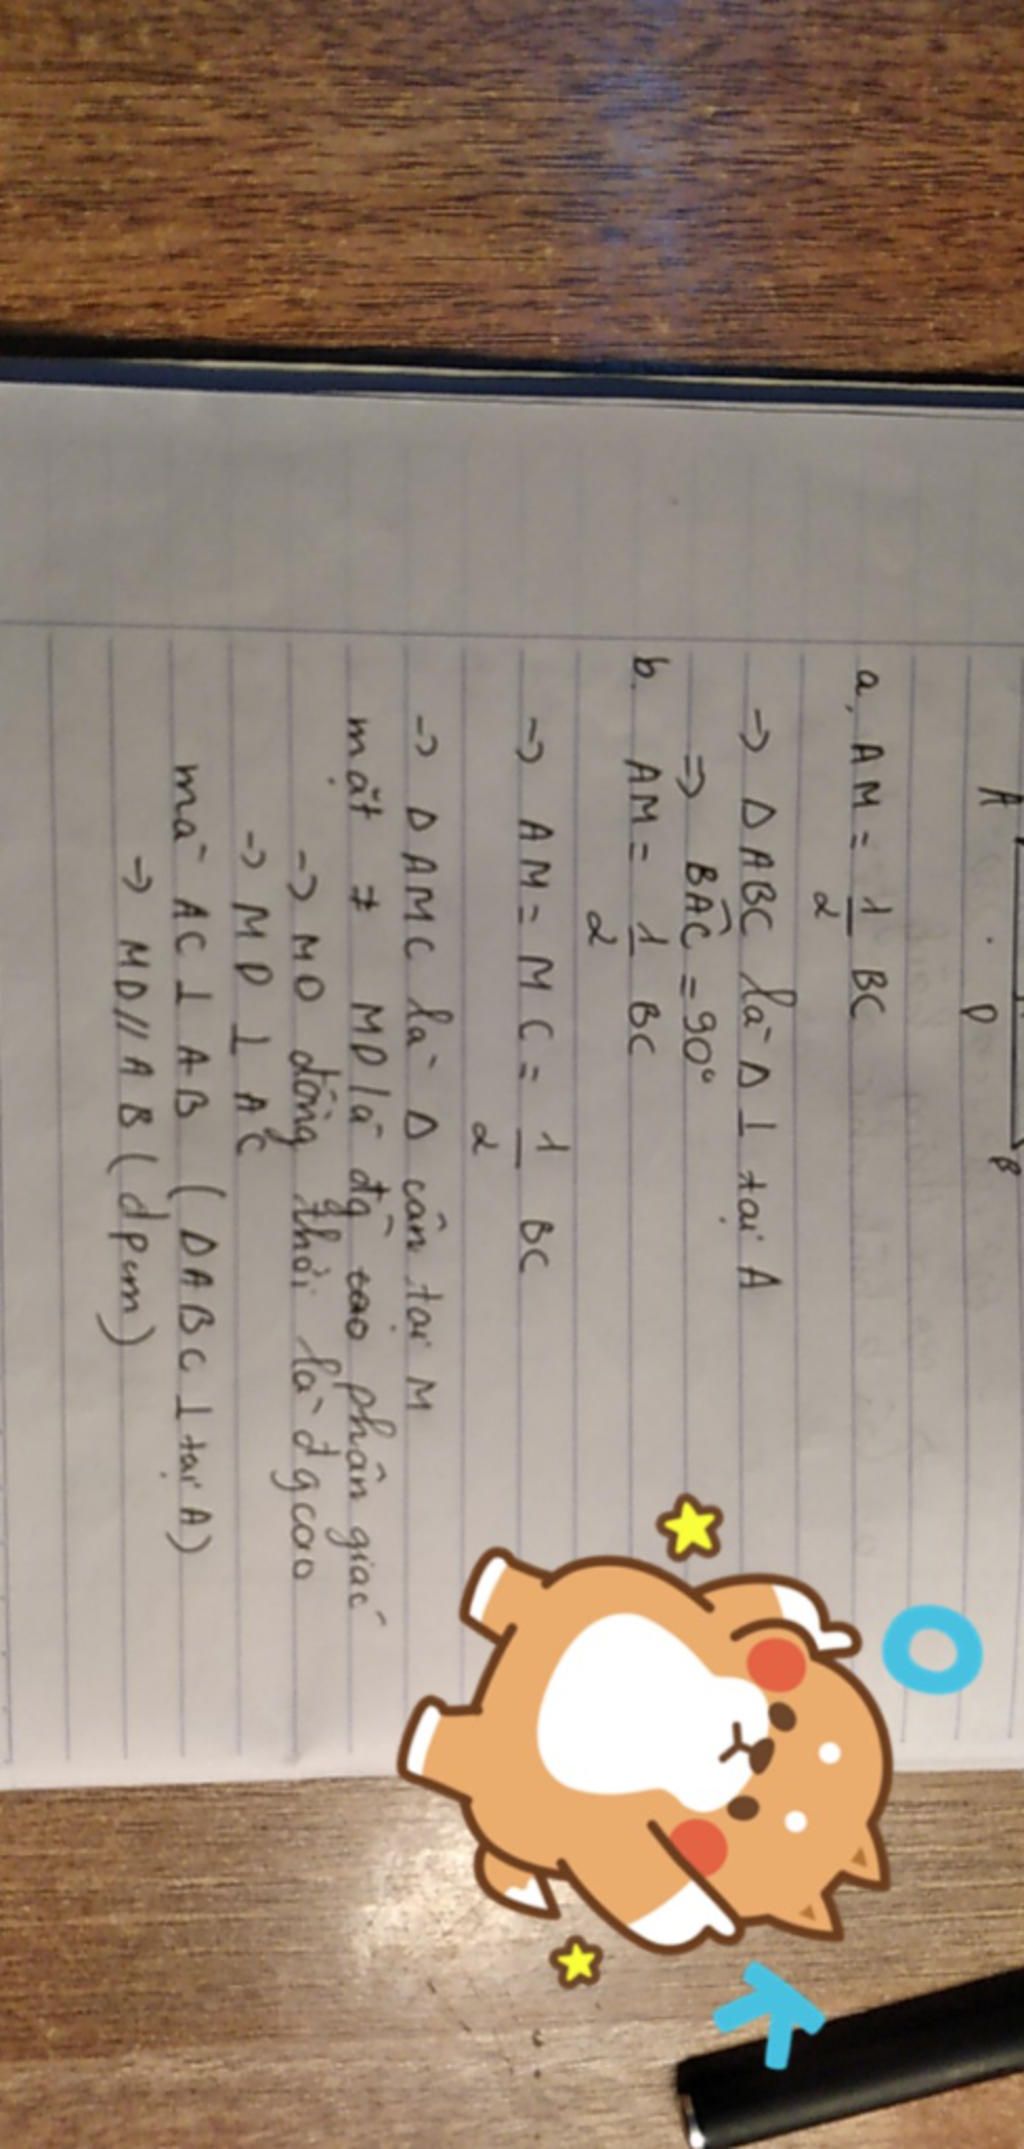 A
D
B
a, AM = 1/2 BC
→ Δ ABC là Δ ⊥ tại A
⇒ BÂC = 90°
b. AM = 1/2 BC
→ AM = MC = 1/2 BC
→ Δ AMC là Δ cân tại M
mặt ≠ MD là đg phân giác
→ MD đồng thời là đg cao
→ MD ⊥ AC
mà AC ⊥ AB (ΔABC ⊥ tại A)
→ MD // AB (đpcm)
OK